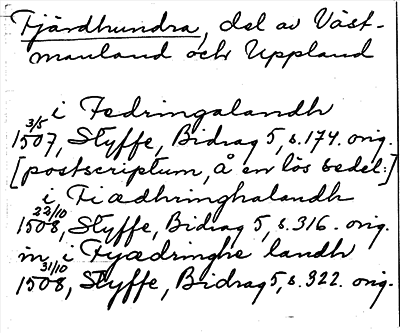 Fjärdhundra, del av Väst-
manland och Uppland
i Fedringalandh
3/5 1507, Styffe, Bidrag 5, s. 174. orig.
[postscriptum, å en lös sedel:]
i Fiædhringhalandh
22/10 1508, Styffe, Bidrag 5, s. 316. orig.
in i Fyædringhe landh
31/10 1508, Styffe, Bidrag 5, s. 322. orig.